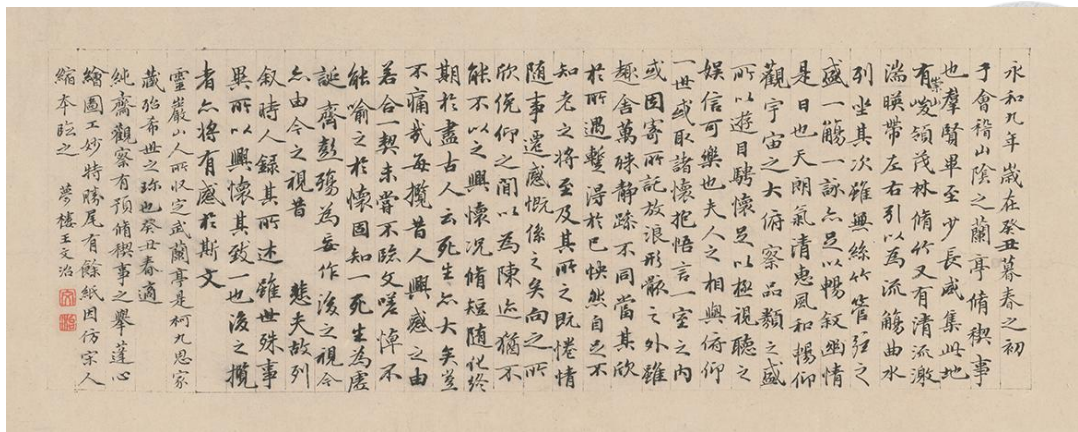 永和九年歲在癸丑暮春之初
于會稽山陰之蘭亭脩稧事
也羣賢畢至少長咸集此地
有崇山峻領茂林脩竹又有清流激
湍暎帶左右引以為流觴曲水
列坐其次雖無絲竹管弦之
盛一觴一詠亦足以暢敘幽情
是日也天朗氣清惠風和暢仰
觀宇宙之大俯察品類之盛
所以遊目騁懷足以極視聽之
娛信可樂也夫人之相與俯仰
一世或取諸懷抱悟言一室之內
或因寄所託放浪形骸之外雖
趣舍萬殊靜躁不同當其欣
於所遇暫得於己怏然自足不
知老之將至及其所之既惓情
隨事遷感慨係之矣向之所
欣俛仰之間以為陳迹猶不
能不以之興懷況脩短隨化終
期於盡古人云死生亦大矣豈
不痛哉每攬昔人興感之由
若合一契未嘗不臨文嗟悼不
能喻之於懷固知一死生為虛
誕齊彭殤為妄作後之視今
亦由今之視昔 悲夫故列
敘時人錄其所述雖世殊事
異所以興懷其致一也後之攬
者亦將有感於斯文
靈巖山人所收定武蘭亭是柯九思家
藏殆希世之珍也癸丑春適
純齋觀察有預脩稧事之舉蓬心
繪圖工妙特勝尾有餘紙因仿宋人
縮本臨之 夢樓王文治